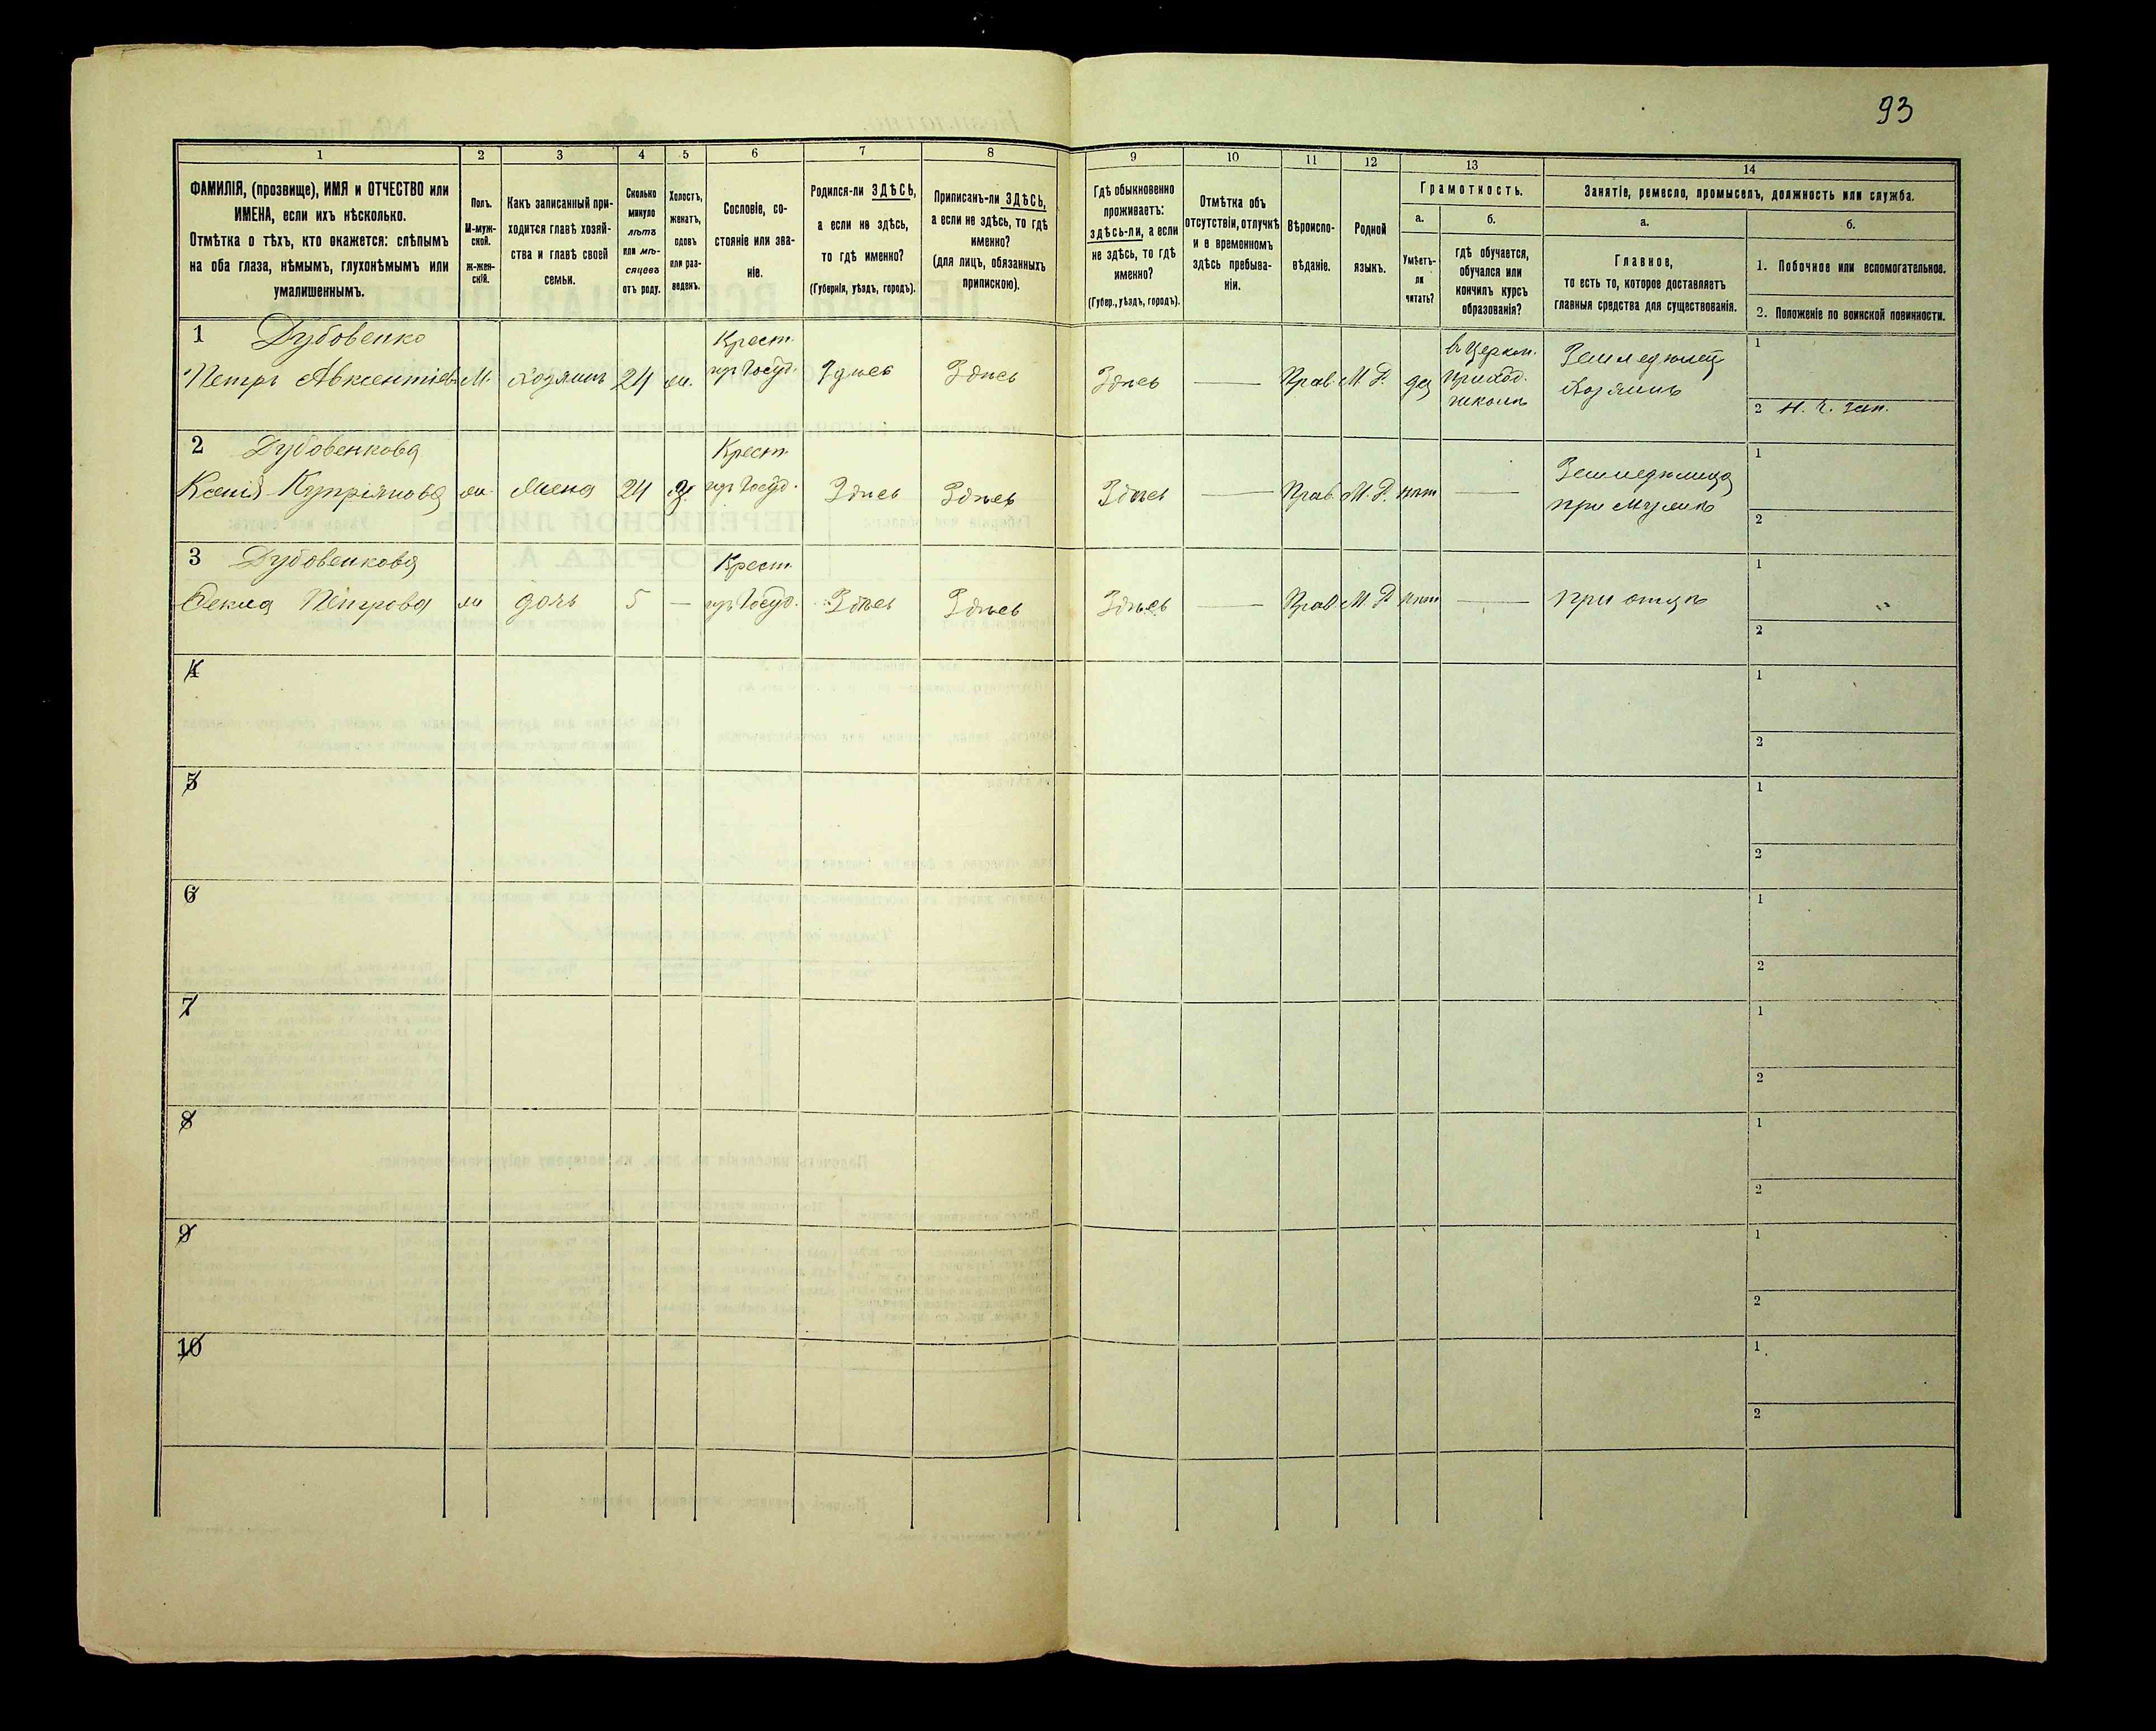 93
1 2 3 4 5 6 7 8 9 10 11 12 13 14
ФАМИЛІЯ, (прозвище), ИМЯ и ОТЧЕСТВО или
ИМЕНА, если ихъ нѣсколько.
Отмѣтка о тѣхъ, кто окажется: слѣпымъ
на оба глаза, нѣмымъ, глухонѣмымъ или
умалишеннымъ.
Полъ.
М-муж-
ской.
ж-жен-
скій.
Какъ записанный при-
ходится главѣ хозяй-
ства и главѣ своей
семьи.
Сколько
минуло
лѣтъ
или мѣ-
сяцевъ
отъ роду.
Холостъ,
женатъ,
вдовъ
или раз-
веденъ.
Сословіе, со-
стояніе или зва-
ніе.
Родился-ли ЗДѢСЬ,
а если не здѣсь,
то гдѣ именно?
(Губернія, уѣздъ, городъ).
Приписанъ-ли ЗДѢСЬ,
а если не здѣсь, то гдѣ
именно?
(для лицъ, обязанныхъ
припискою).
Гдѣ обыкновенно
проживаетъ:
здѣсь-ли, а если
не здѣсь, то гдѣ
именно?
(Губер., уѣздъ, городъ).
Отмѣтка объ
отсутствіи, отлучкѣ
и о временномъ
здѣсь пребыва-
ніи.
Вѣроиспо-
вѣданіе.
Родной
языкъ.
Грамотность.
а.
Умѣетъ-
ли
читать?
б.
гдѣ обучается,
обучался или
кончилъ курсъ
образованія?
Занятіе, ремесло, промыселъ, должность или служба.
а.
Главное,
то есть то, которое доставляетъ
главныя средства для существованія.
б.
1. Побочное или вспомогательное.
2. Положеніе по воинской повинности.
1 Дубовенко
Петръ Авксентіев
М.
хозяинъ
24
ж.
Крест.
изъ Госуд.
Здѣсь
Здѣсь
Здѣсь
—
Прав.
М. Р.
да
въ Церков.
приход.
школѣ
Земледѣлец
хозяинъ
1
2 Н. ч. зап.
2 Дубовенкова
Ксенія Купріянова
ж.
Жена
24
з
Крест.
изъ Госуд.
Здѣсь
Здѣсь
Здѣсь
—
Прав.
М. Р.
нѣт
—
Земледѣлица
при мужѣ
1
2
3 Дубовенкова
Ѳекла Петрова
ж
дочь
5
—
Крест.
изъ Госуд.
Здѣсь
Здѣсь
Здѣсь
—
Прав
М Р
нѣт
—
при отцѣ
1
„
2
4
1
2
5
1
2
6
1
2
7
1
2
8
1
2
9
1
2
10
1
2